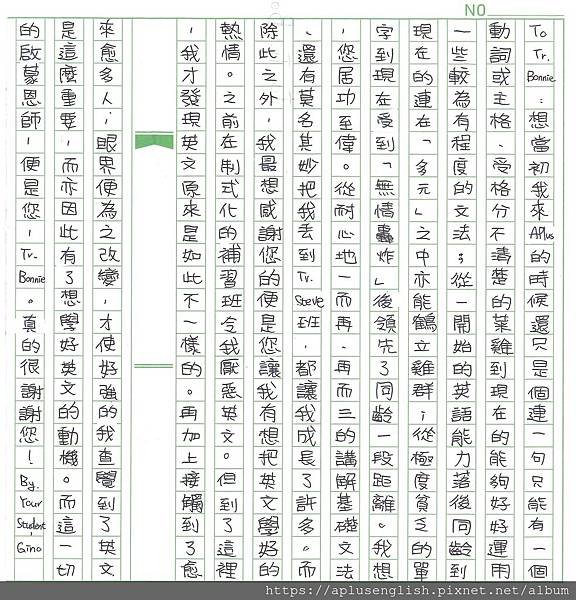 NO
To Tr. Bonnie：想當初我來APlus的時候還只是個連一句只能有一個
動詞或主格、受格分不清楚的菜雞到現在的能夠好好運用
一些較為有程度的文法；從一開始的英語能力落後同齡到
現在的連在「多元」之中亦能鶴立雞群；從極度貧乏的單
字到現在受到「無情轟炸」後領先了同齡一段距離。我想
，您居功至偉。從耐心地一而再、再而三的講解基礎文法
、還有莫名其妙把我丟到Tr. Steve班，都讓我成長了許多。而
除此之外，我最想感謝您的便是您讓我有想把英文學好的
熱情。之前在制式化的補習班令我厭惡英文。但到了這裡
，我才發現英文原來是如此不一樣的。再加上接觸到了愈
來愈多人，眼界便為之改變，才使好強的我查覺到了英文
是這麼重要，而亦因此有了想學好英文的動機。而這一切
的啟蒙恩師，便是您，Tr. Bonnie。真的很謝謝您！By. Your Student, Gino
https://aplusenglish.pixnet.net/album